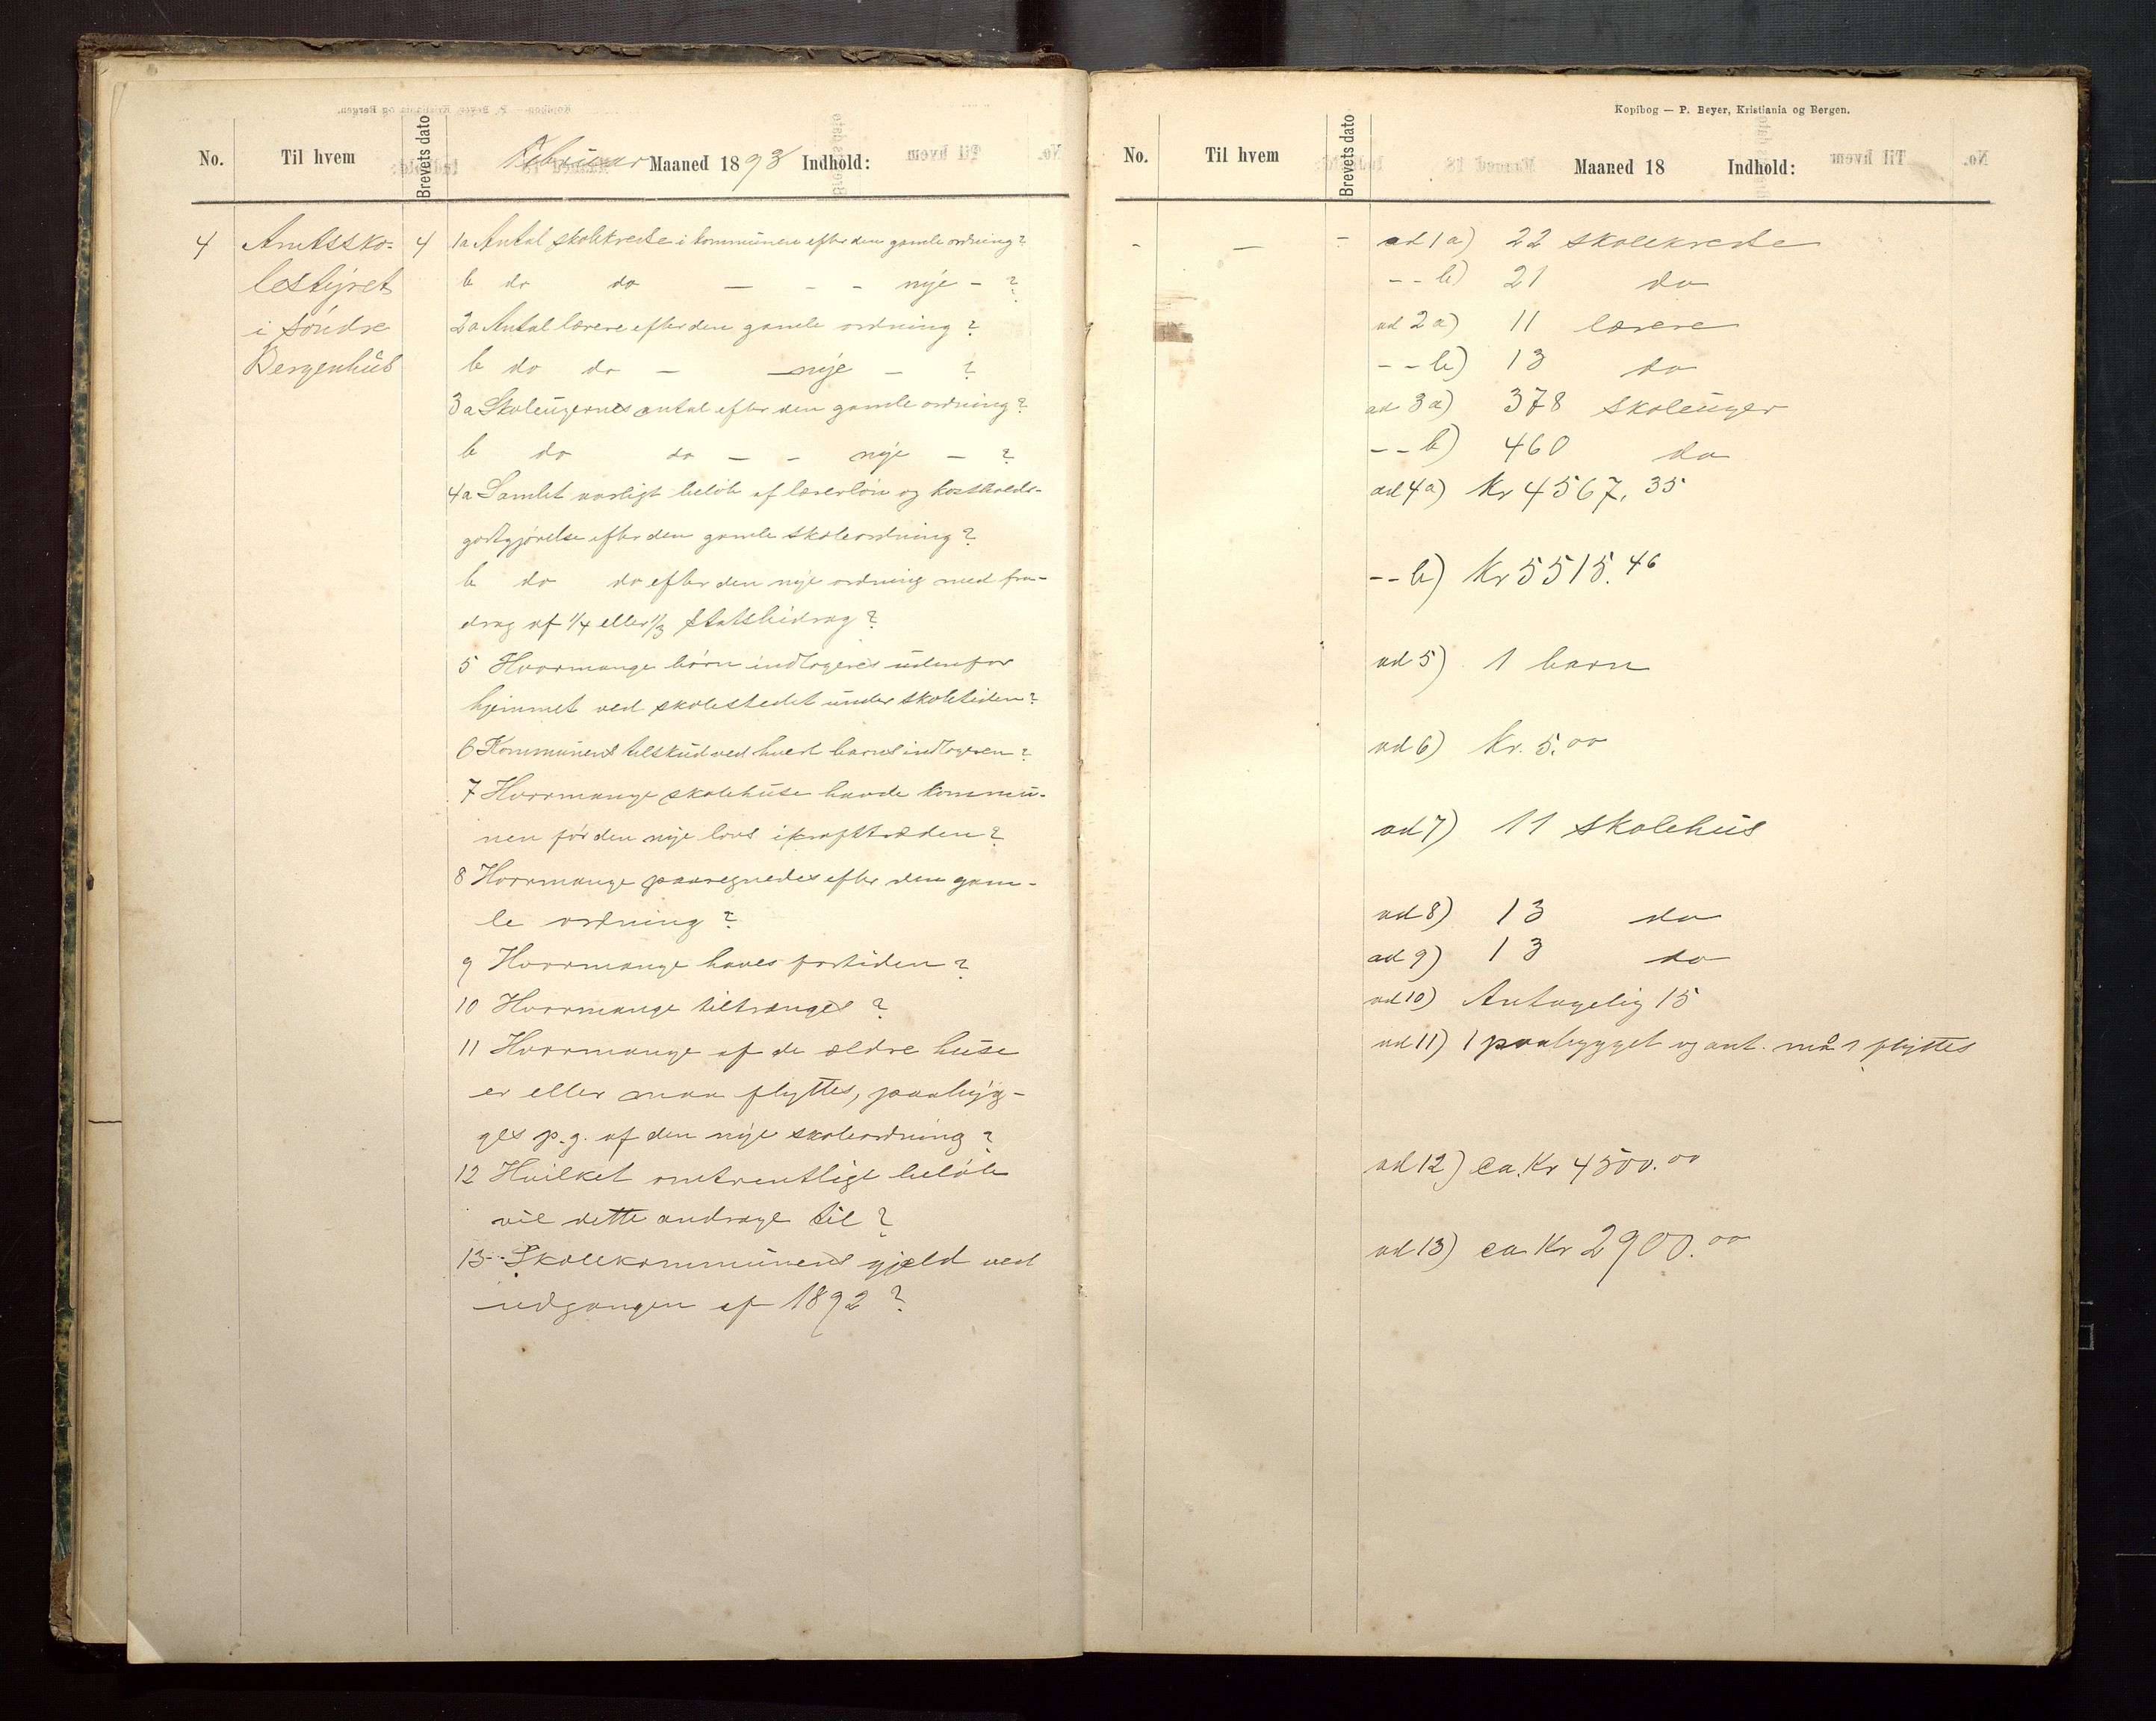 No.
Til hvem
Brevets dato
Februar Maaned 1893 Indhold:
4
Amtssko-
lestyret
i søndre
Bergenhus
4
1a Antal skolekredse i kommunen efter den gamle ordning?
b do do — - - nye - ?
2a Antal lærere efter den gamle ordning?
b do do — — nye — ?
3a Skoleugernes antal efter den gamle ordning?
b do do — - nye — ?
4a Samlet aarligt beløb af lærerløn og kostholds-
godtgjørelse efter den gamle skoleordning?
b do do efter den nye ordning med fra-
drag af 1/4 eller 1/3 statsbidrag?
5 Hvormange børn indlogeres udenfor
hjemmet ved skolestedet under skoletiden?
6 Kommunens tilskud ved hvert barns indlogeren?
7 Hvormange skolehuse havde kommu-
nen før den nye lovs ikrafttræden?
8 Hvormange paaregnedes efter den gam-
le ordning?
9 Hvormange haves fortiden?
10 Hvormange tiltrænges?
11 Hvormange af de ældre huse
er eller maa flyttes, paabyg-
ges p.g. af den nye skoleordning?
12 Hvilket omtrentligt beløb
vil dette andrage til?
13 Skolekommunens gjæld ved
udgangen af 1892?
Kopibog — P. Beyer, Kristiania og Bergen.
No.
Til hvem
Brevets dato
Maaned 18 Indhold:
- — -
ad 1a) 22 skolekredse
- - b) 21 do
ad 2a) 11 lærere
- - b) 13 do
ad 3a) 378 skoleuger
- - b) 460 do
ad 4a) Kr 4567.35
- - b) Kr 5515.46
ad 5) 1 barn
ad 6) Kr. 5.00
ad 7) 11 skolehus
ad 8) 13 do
ad 9) 13 do
ad 10) Antagelig 15
ad 11) 1 paabygget og ant. må 1 flyttes
ad 12) ca. Kr 4500.00
ad 13) ca Kr 2900.00